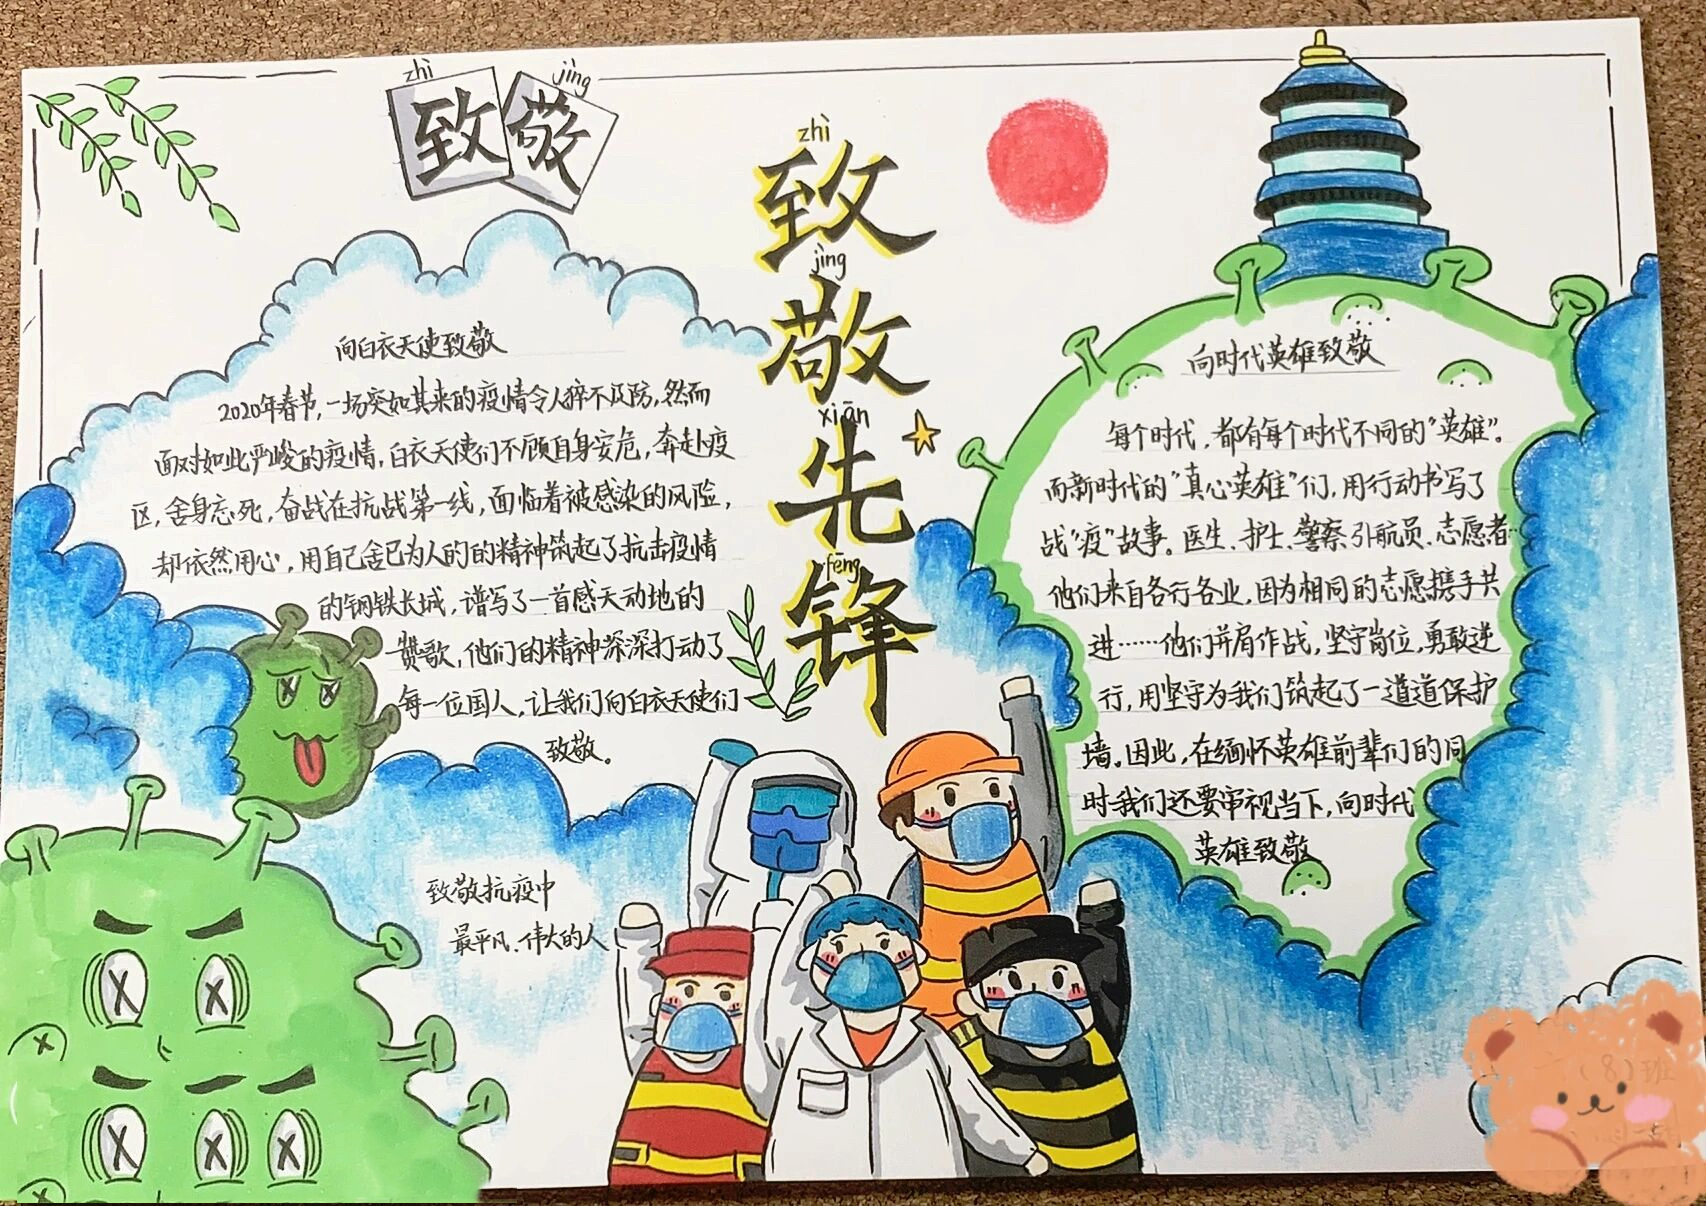 zhì jìng
致敬
zhì
致
jìng
敬
xiān
先
fēng
锋
向白衣天使致敬
2020年春节,一场突如其来的疫情令人猝不及防,然而
面对如此严峻的疫情,白衣天使们不顾自身安危,奔赴疫
区,舍身忘死,奋战在抗战第一线,面临着被感染的风险,
却依然用心,用自己舍己为人的的精神筑起了抗击疫情
的钢铁长城,谱写了一首感天动地的
赞歌,他们的精神深深打动了
每一位国人,让我们向白衣天使们
致敬。
致敬抗疫中
最平凡、伟大的人
向时代英雄致敬
每个时代,都有每个时代不同的“英雄”。
而新时代的“真心英雄”们,用行动书写了
战“疫”故事。医生、护士、警察、引航员、志愿者…
他们来自各行各业,因为相同的志愿携手共
进……他们并肩作战,坚守岗位,勇敢逆
行,用坚守为我们筑起了一道道保护
墙。因此,在缅怀英雄前辈们的同
时我们还要审视当下,向时代
英雄致敬
(8)班